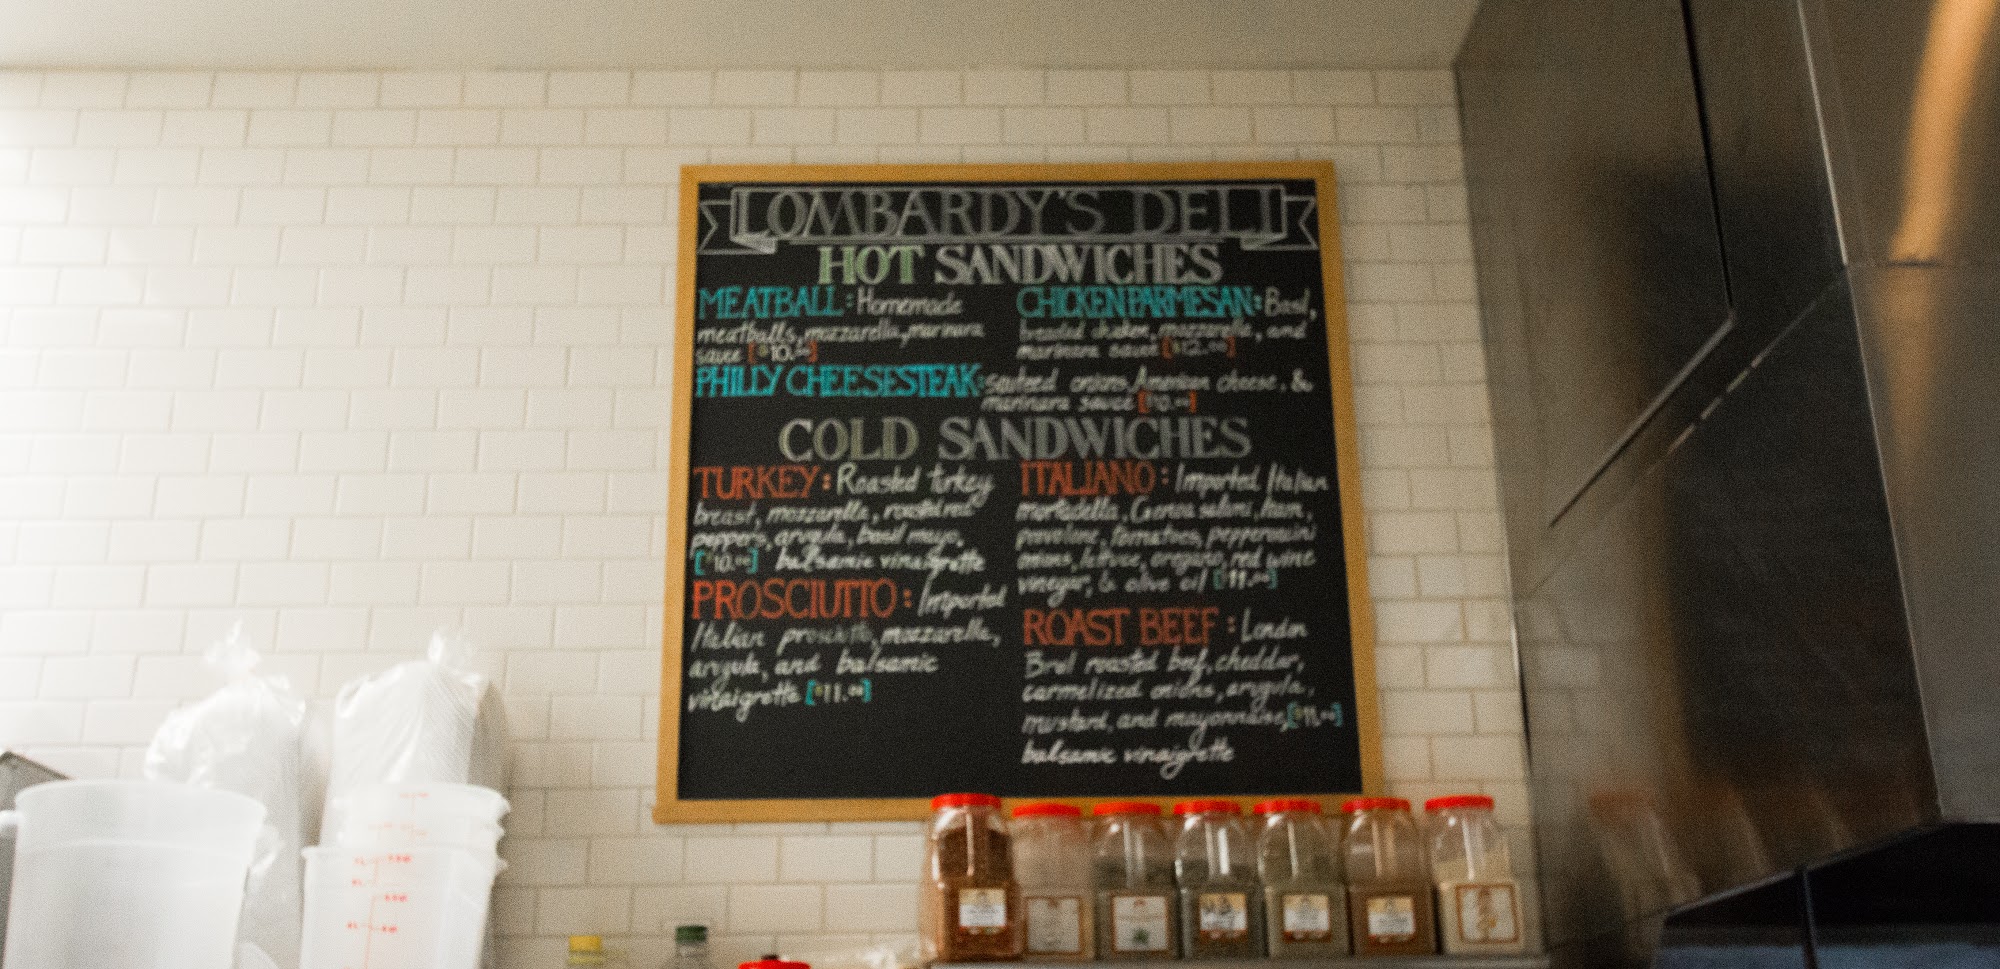 LOMBARDY'S DELI
HOT SANDWICHES
MEATBALL: Homemade
meatballs, mozzarella, marinara
sauce [$10.00]
CHICKEN PARMESAN: Basil,
breaded chicken, mozzarella, and
marinara sauce [$12.00]
PHILLY CHEESESTEAK: sauteed onions, American cheese, &
marinara sauce
COLD SANDWICHES
TURKEY: Roasted turkey
breast, mozzarella, roasted red
peppers, arugula, basil mayo,
[$10.00] balsamic vinaigrette
PROSCIUTTO: Imported
Italian prosciutto, mozzarella,
arugula, and balsamic
vinaigrette [$11.00]
ITALIANO: Imported Italian
mortadella, Genoa salami, ham,
provolone, tomatoes, pepperoncini
onions, lettuce, oregano, red wine
vinegar, & olive oil [$11.00]
ROAST BEEF: London
Broil roasted beef, cheddar,
carmelized onions, arugula,
mustard, and mayonnaise, [$11.00]
balsamic vinaigrette